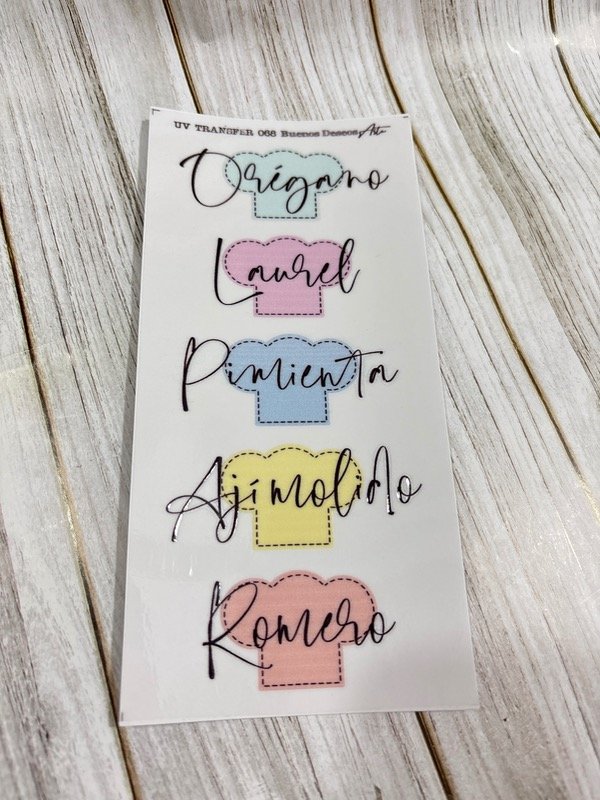 UV TRANSFER 068 Buenos Deseos Arte
Orégano
Laurel
Pimienta
Ají molido
Romero